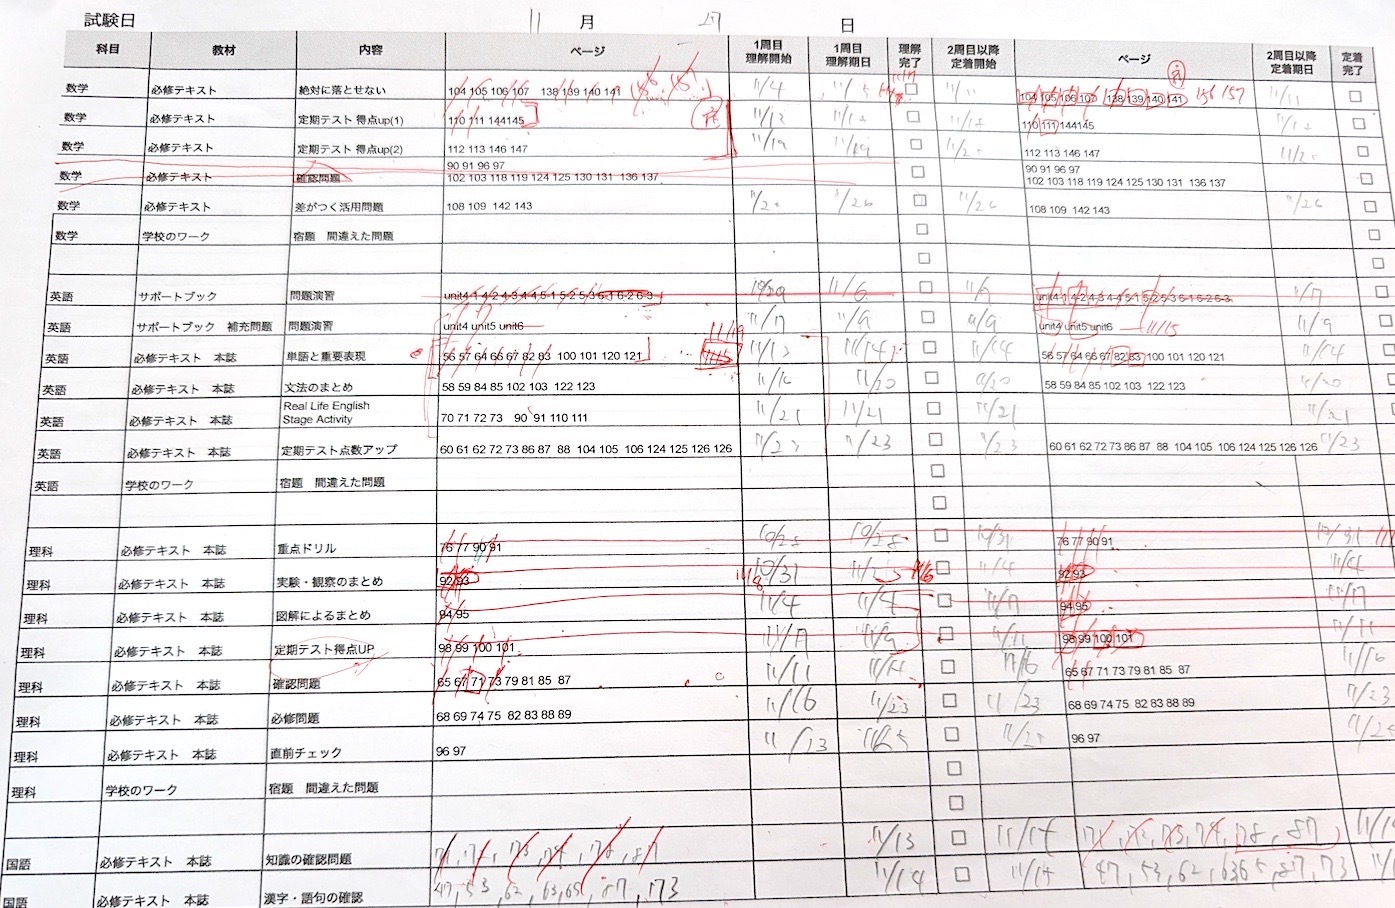 試験日 11 月 27 日
科目 教材 内容 ページ 1周目 理解開始 1周目 理解期日 理解 完了 2周目以降 定着開始 ページ 2周目以降 定着期日 定着 完了
数学 必修テキスト 絶対に落とせない 104 105 106 107 138 139 140 141 11/4 11/5 11/11 104 105 106 107 138 139 140 141 156 157 11/11
数学 必修テキスト 定期テスト 得点up(1) 110 111 144145 11/12 11/18 11/18 110 111 144145 11/18
数学 必修テキスト 定期テスト 得点up(2) 112 113 146 147 11/19 11/19 11/20 112 113 146 147 11/20
数学 必修テキスト 確認問題 90 91 96 97 90 91 96 97
102 103 118 119 124 125 130 131 136 137 102 103 118 119 124 125 130 131 136 137
数学 必修テキスト 差がつく活用問題 108 109 142 143 11/20 11/26 11/26 108 109 142 143 11/26
数学 学校のワーク 宿題 間違えた問題
英語 サポートブック 問題演習 unit4-1 4-2 4-3 4-4 5-1 5-2 5-3 6-1 6-2 6-3 10/29 11/6 unit4-1 4-2 4-3 4-4 5-1 5-2 5-3 6-1 6-2 6-3 11/7
英語 サポートブック 補充問題 問題演習 unit4 unit5 unit6 11/7 11/9 11/9 unit4 unit5 unit6 11/15 11/9
英語 必修テキスト 本誌 単語と重要表現 56 57 64 66 67 82 83 100 101 120 121 11/19 11/13 11/14 11/14 56 57 64 66 67 82 83 100 101 120 121 11/14
英語 必修テキスト 本誌 文法のまとめ 58 59 84 85 102 103 122 123 11/16 11/20 11/20 58 59 84 85 102 103 122 123 11/20
英語 必修テキスト 本誌 Real Life English Stage Activity 70 71 72 73 90 91 110 111 11/21 11/21 11/21 11/21
英語 必修テキスト 本誌 定期テスト点数アップ 60 61 62 72 73 86 87 88 104 105 106 124 125 126 126 11/23 11/23 11/23 60 61 62 72 73 86 87 88 104 105 106 124 125 126 126 11/23
英語 学校のワーク 宿題 間違えた問題
理科 必修テキスト 本誌 重点ドリル 76 77 90 91 10/28 10/28 10/31 76 77 90 91 10/31
理科 必修テキスト 本誌 実験・観察のまとめ 92 93 11/8 10/31 11/6 11/4 92 93 11/4
理科 必修テキスト 本誌 図解によるまとめ 94 95 11/4 11/4 11/7 94 95 11/7
理科 必修テキスト 本誌 定期テスト得点UP 98 99 100 101 11/7 11/9 11/11 98 99 100 101 11/11
理科 必修テキスト 本誌 確認問題 65 67 71 73 79 81 85 87 11/11 11/14 11/16 65 67 71 73 79 81 85 87 11/16
理科 必修テキスト 本誌 必修問題 68 69 74 75 82 83 88 89 11/16 11/23 11/23 68 69 74 75 82 83 88 89 11/23
理科 必修テキスト 本誌 直前チェック 96 97 11/23 11/25 11/25 96 97 11/25
理科 学校のワーク 宿題 間違えた問題
国語 必修テキスト 本誌 知識の確認問題 71, 72, 73, 74, 78, 87 11/13 11/14 71, 72, 73, 74, 78, 87
国語 必修テキスト 本誌 漢字・語句の確認 47, 53, 62, 63,65, 87, 173 11/14 11/14 47, 53, 62, 63 65, 87, 73